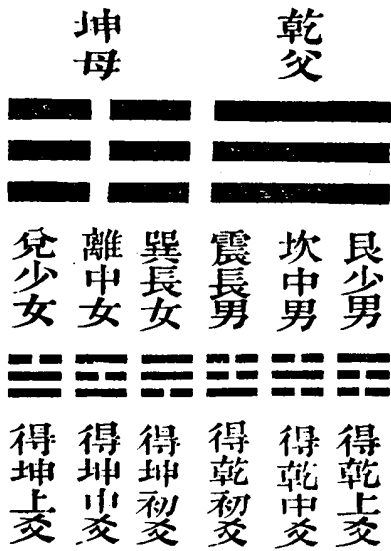 乾父
坤母
艮少男
坎中男
震長男
巽長女
離中女
兌少女
得乾上爻
得乾中爻
得乾初爻
得坤初爻
得坤中爻
得坤上爻